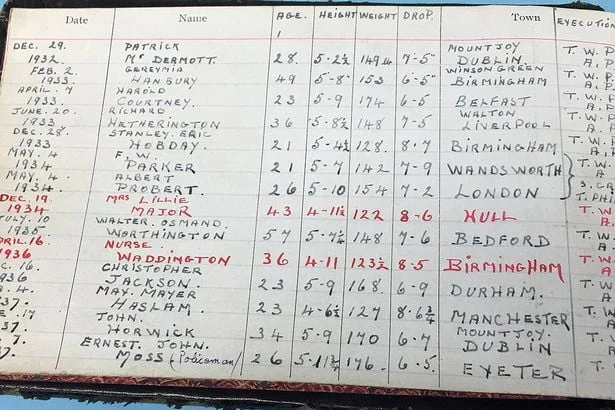 Date Name AGE. HEIGHT WEIGHT DROP. Town EXECUTION
DEC. 29. PATRICK MOUNTJOY T. W. P
1932. Mc DERMOTT. 28. 5-2½ 149½ 7-5" DUBLIN. A. P.
FEB. 2. GEREYMIA WINSON GREEN T. W. P
1933. HANBURY 49 5-8" 153 6-5" BIRMINGHAM A. P.
APRIL. 7 HAROLD T. W.
1933. COURTNEY. 23 5-9 174 6-5 BELFAST A. P
JUNE. 20. RICHARD. WALTON T. W.
1933. HETHERINGTON 36 5-8½ 148 7-5 LIVERPOOL A. P
DEC. 28. STANLEY. ERIC T. W.
1933 HOBDAY. 21 5-4½ 128 8-7 BIRMINGHAM A. P
MAY. 4 F. W. T. W.
1934 PARKER 21 5-7 142 7-9 WANDSWORTH A.
MAY. 4 ALBERT S. C
1934. PROBERT. 26 5-10 154 7-2 LONDON T. PHI
DEC. 19. MRS LILLIE T. W
1934. MAJOR 43 4-11½ 122 8-6 HULL A.
JULY. 10 WALTER. OSMAND. T. W
1935 WORTHINGTON 57 5-7½ 148 7-6 BEDFORD A.
APRIL. 16. NURSE... T. W
1936 WADDINGTON 36 4-11 123½ 8.5 BIRMINGHAM A.
C. 16. CHRISTOPHER T. W
936 JACKSON. 23 5-9 168 6-9 DURHAM. A.
4. MAX. MAYER T. W
37. HASLAM. 23 4-6½ 127 8-6¾ MANCHESTER
17 JOHN. MOUNTJOY. T. W
37. HORWICK 34 5-9 170 6-7 DUBLIN A.
7. ERNEST. JOHN. T.
7. MOSS (Policeman) 26 5-11½ 176. 6.5 EXETER